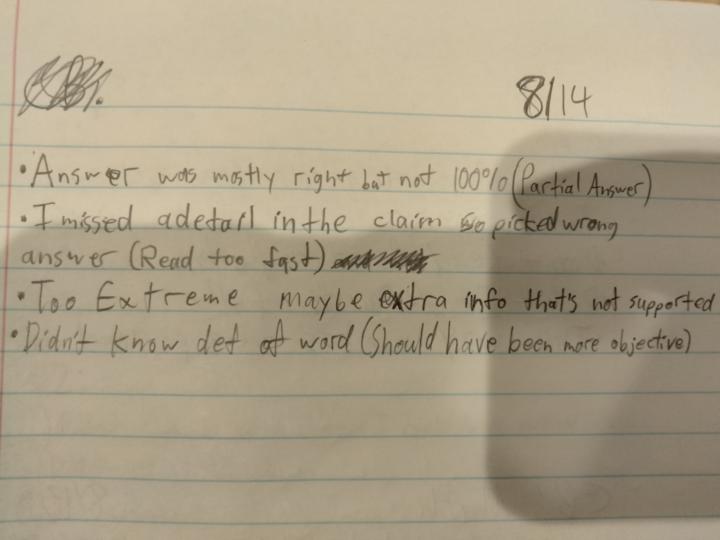 8/14
• Answer was mostly right but not 100% (Partial Answer)
• I missed a detail in the claim so picked wrong
answer (Read too fast)
• Too Extreme maybe extra info that's not supported
• Didn't know def of word (Should have been more objective)